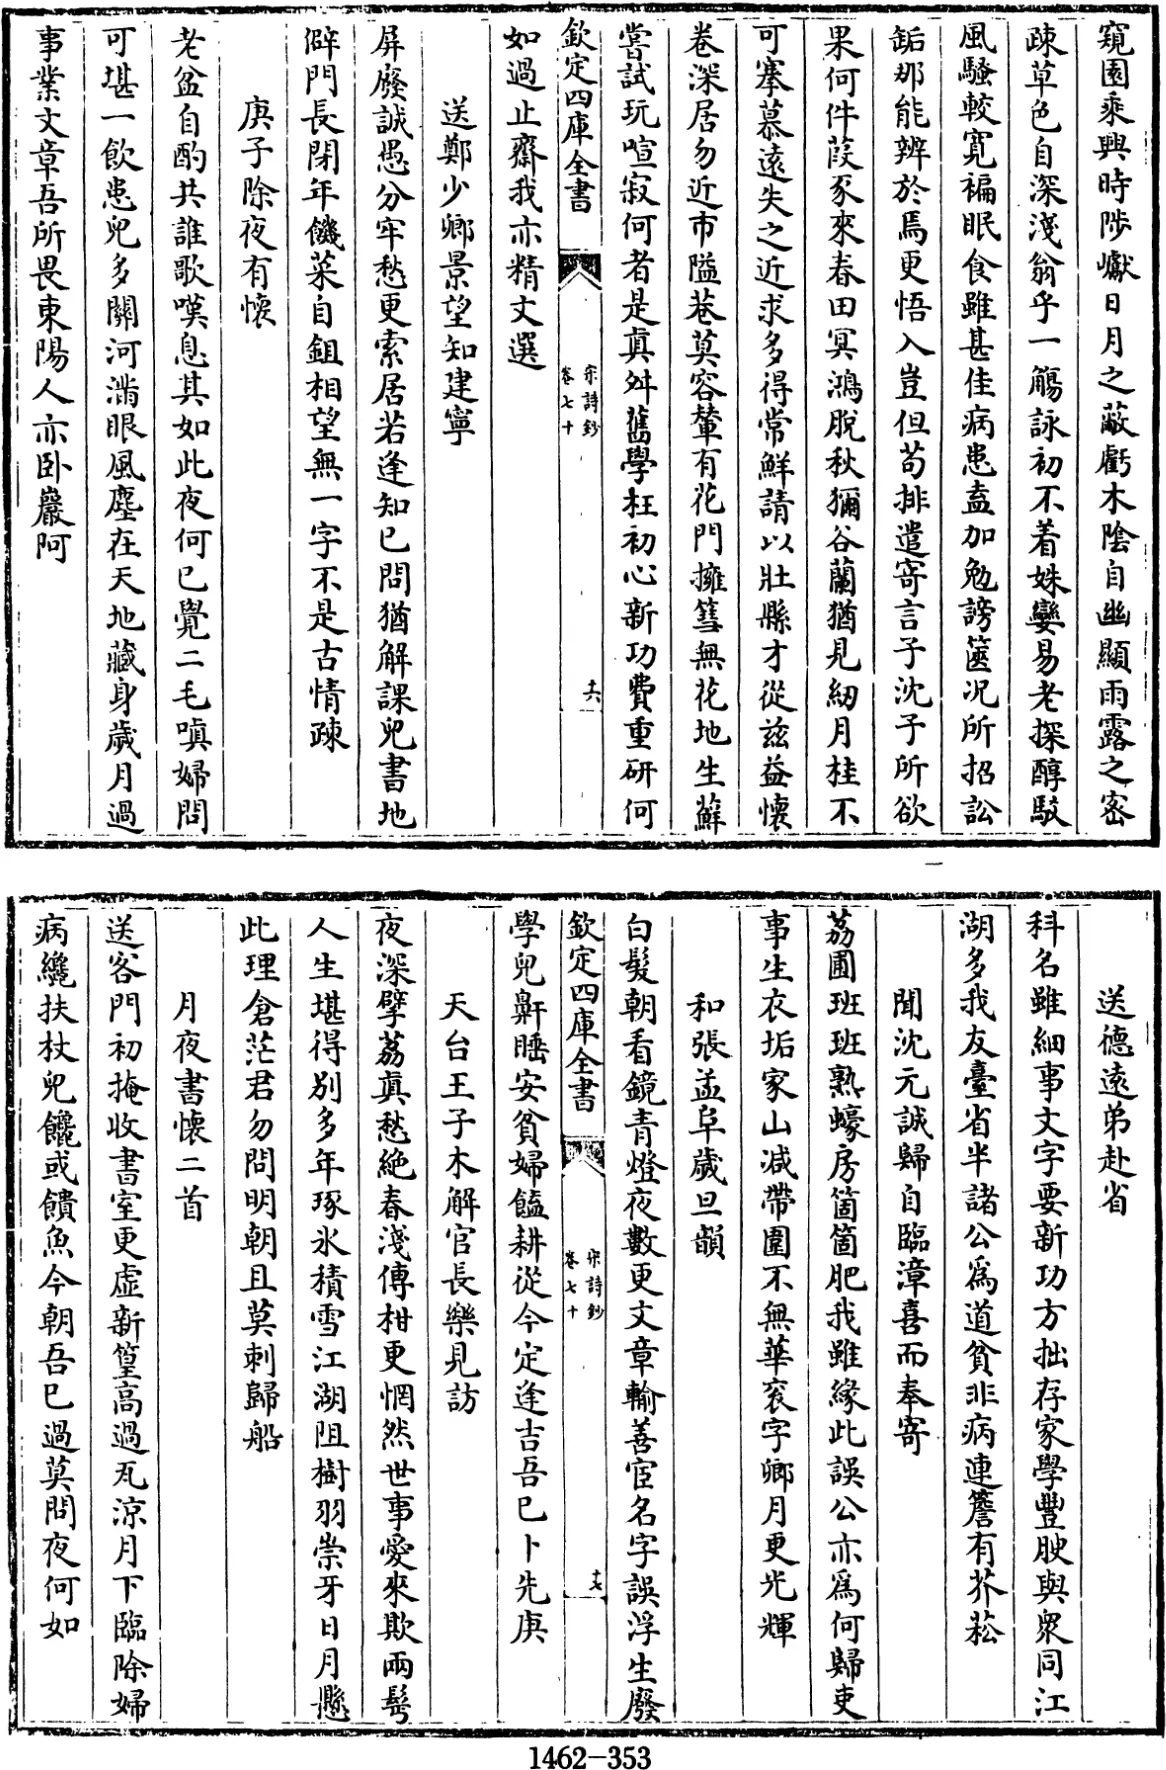 窺園乗興時陟巘日月之蔽虧木陰自幽顯雨露之密
疎草色自深淺翁乎一觴詠初不着姝孌易老探醇駁
風騷較寛褊眠食雖甚佳病患盍加勉謗篋况所招訟
缿那能辨於焉更悟入豈但苟排遣寄言子沈子所欲
果何件葭豕來春田冥鴻脱秋獮谷蘭猶見紉月桂不
可搴慕遠失之近求多得常鮮請以壯縣才從兹益懐
卷深居勿近市隘巷莫容輦有花門擁篲無花地生蘚
嘗試玩喧寂何者是真舛舊學枉初心新功費重研何
欽定四庫全書
宋詩鈔
卷七十
十六
如過止齋我亦精文選
送鄭少卿景望知建寧
屏廢誠愚分牢愁更索居若逢知已問猶解課兒書地
僻門長閉年饑菜自鉏相望無一字不是古情疎
庚子除夜有懐
老盆自酌共誰歌嘆息其如此夜何已覺二毛嗔婦問
可堪一飲患兒多關河滿眼風塵在天地藏身歲月過
事業文章吾所畏東陽人亦卧巖阿
送德遠弟赴省
科名雖細事文字要新功方拙存家學豐腴與衆同江
湖多我友臺省半諸公爲道貧非病連簷有芥菘
聞沈元誠歸自臨漳喜而奉寄
荔圃班班熟蠔房箇箇肥我雖緣此誤公亦爲何歸吏
事生衣垢家山减帶圍不無華衮字卿月更光輝
和張孟阜歲旦韻
白髮朝看鏡青燈夜數更文章輸善宦名字誤浮生廢
欽定四庫全書
宋詩鈔
卷七十
十七
學兒鼾睡安貧婦饁耕從今定逢吉吾已卜先庚
天台王子木解官長樂見訪
夜深擘荔真愁絶春淺傳柑更惘然世事愛來欺兩髩
人生堪得别多年琢氷積雪江湖阻樹羽崇牙日月懸
此理倉茫君勿問明朝且莫刺歸船
月夜書懐二首
送客門初掩收書室更虚新篁高過瓦凉月下臨除婦
病纔扶杖兒饞或饋魚今朝吾已過莫問夜何如
1462-353